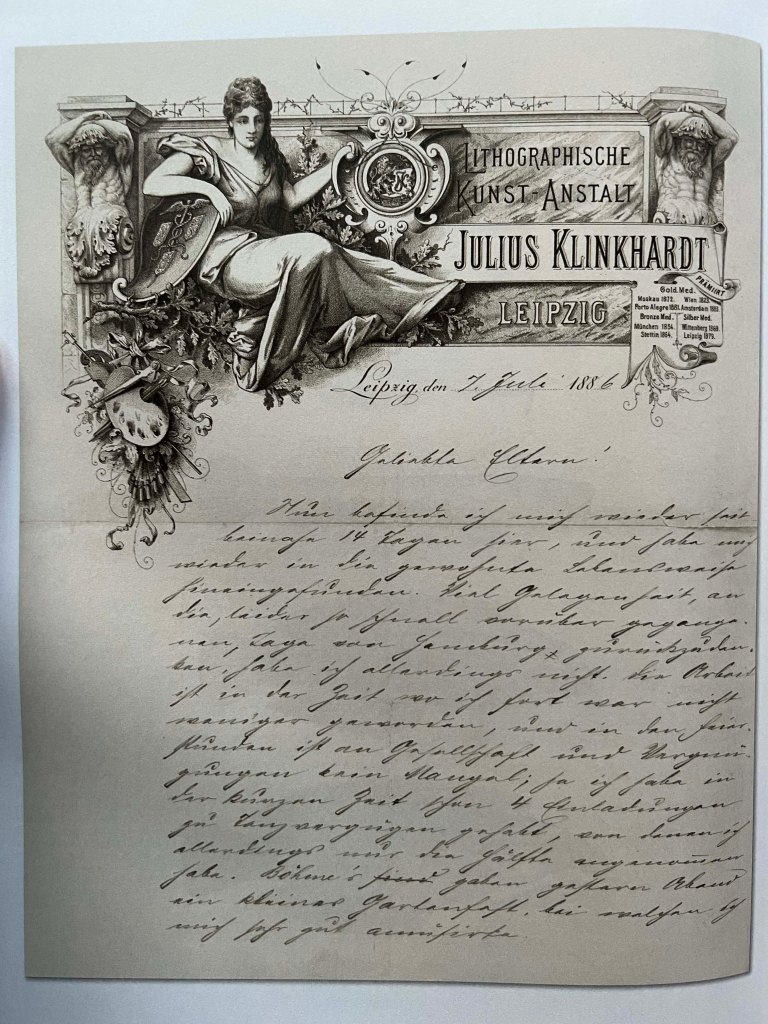 LITHOGRAPHISCHE
KUNST-ANSTALT
JULIUS KLINKHARDT
LEIPZIG
PRÄMIIRT
Gold. Med.
Moskau 1872. Wien 1873.
Porto Alegre 1881. Amsterdam 1883
Bronze Med. Silber Med.
München 1854. Wittenberg 1869.
Stettin 1864. Leipzig 1879.
Leipzig, den 7. Juli 1886
Geliebte Eltern!
Nun befinde ich mich wieder seit
beinahe 14 Tagen hier, und habe mich
wieder in die gewohnte Lebensweise
hineingefunden. Viel Gelegenheit, an
die, leider so schnell vorüber gegange-
nen, Tage von Hamburg zurückzuden-
ken, habe ich allerdings nicht. Die Arbeit
ist in der Zeit wo ich fort war nicht
weniger geworden, und in den Feier-
stunden ist an Gesellschaft und Vergnü-
gungen kein Mangel; ja ich habe in
der kurzen Zeit schon 4 Einladungen
zu Tanzvergügen gehabt, von denen ich
allerdings nur die Hälfte angenommen
habe. Böhme's sind gaben gestern Abend
ein kleines Gartenfest, bei welchen ich
mich sehr gut amüsirte.